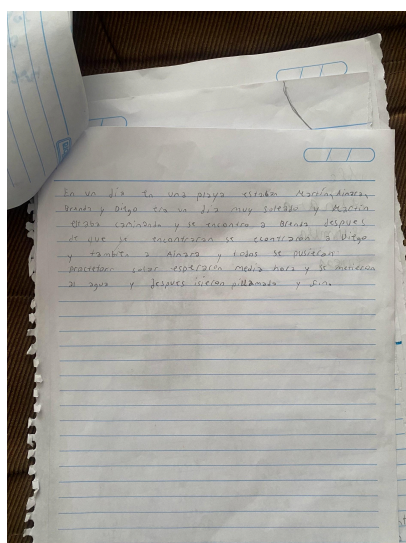 En un día en una playa estaban Martín, Ainara,
Brenda y Diego era un día muy soleado y Martín
estaba caminando y se encontro a Brenda despues
de que se encontraran se econtraron a Diego
y tambien a Ainara y todos se pusieron
protector solar esperaron media hora y se metieron
al agua y despues isieron pillamada y fin.